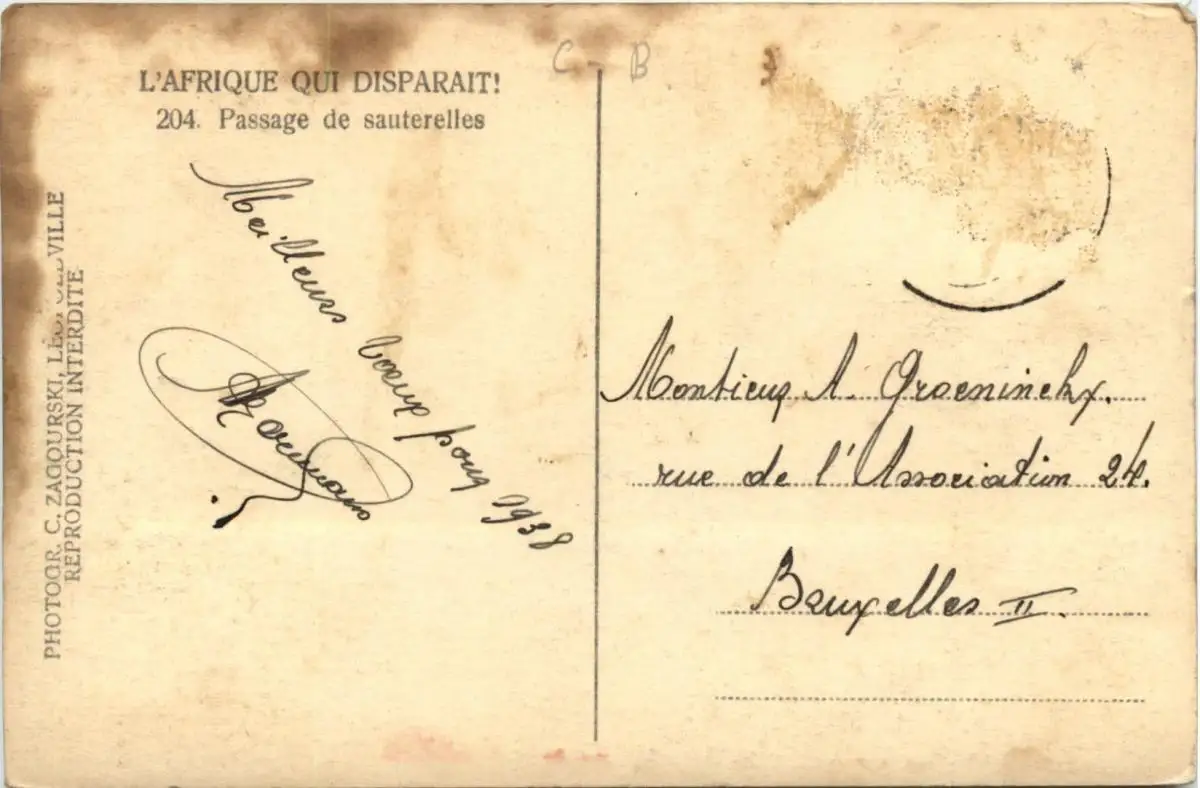 C-B
L'AFRIQUE QUI DISPARAIT!
204. Passage de sauterelles
Meilleurs voeux pour 1938
PHOTOGR. C. ZAGOURSKI, LÉOPOLDVILLE
REPRODUCTION INTERDITE
Monsieur A. Groeninckx.
rue de l'Association 24.
Bruxelles II.